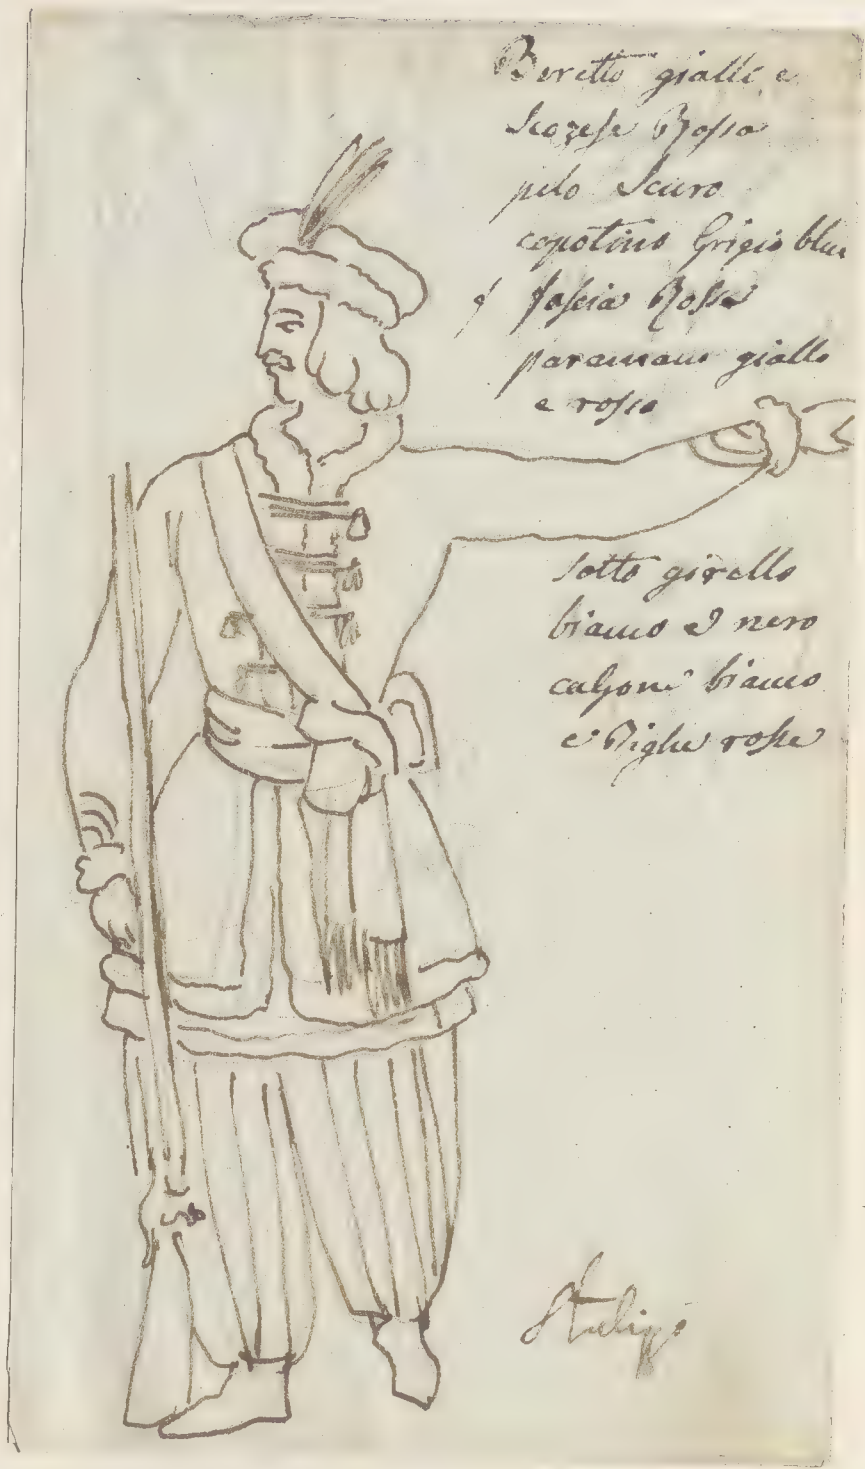 Beretto giallo e
Scozese Rosso
pelo Scuro
capotino Grigio blu
fascia Rossa
paramano giallo
e rosso
sotto girello
bianco e nero
calzone bianco
e Righe rosse